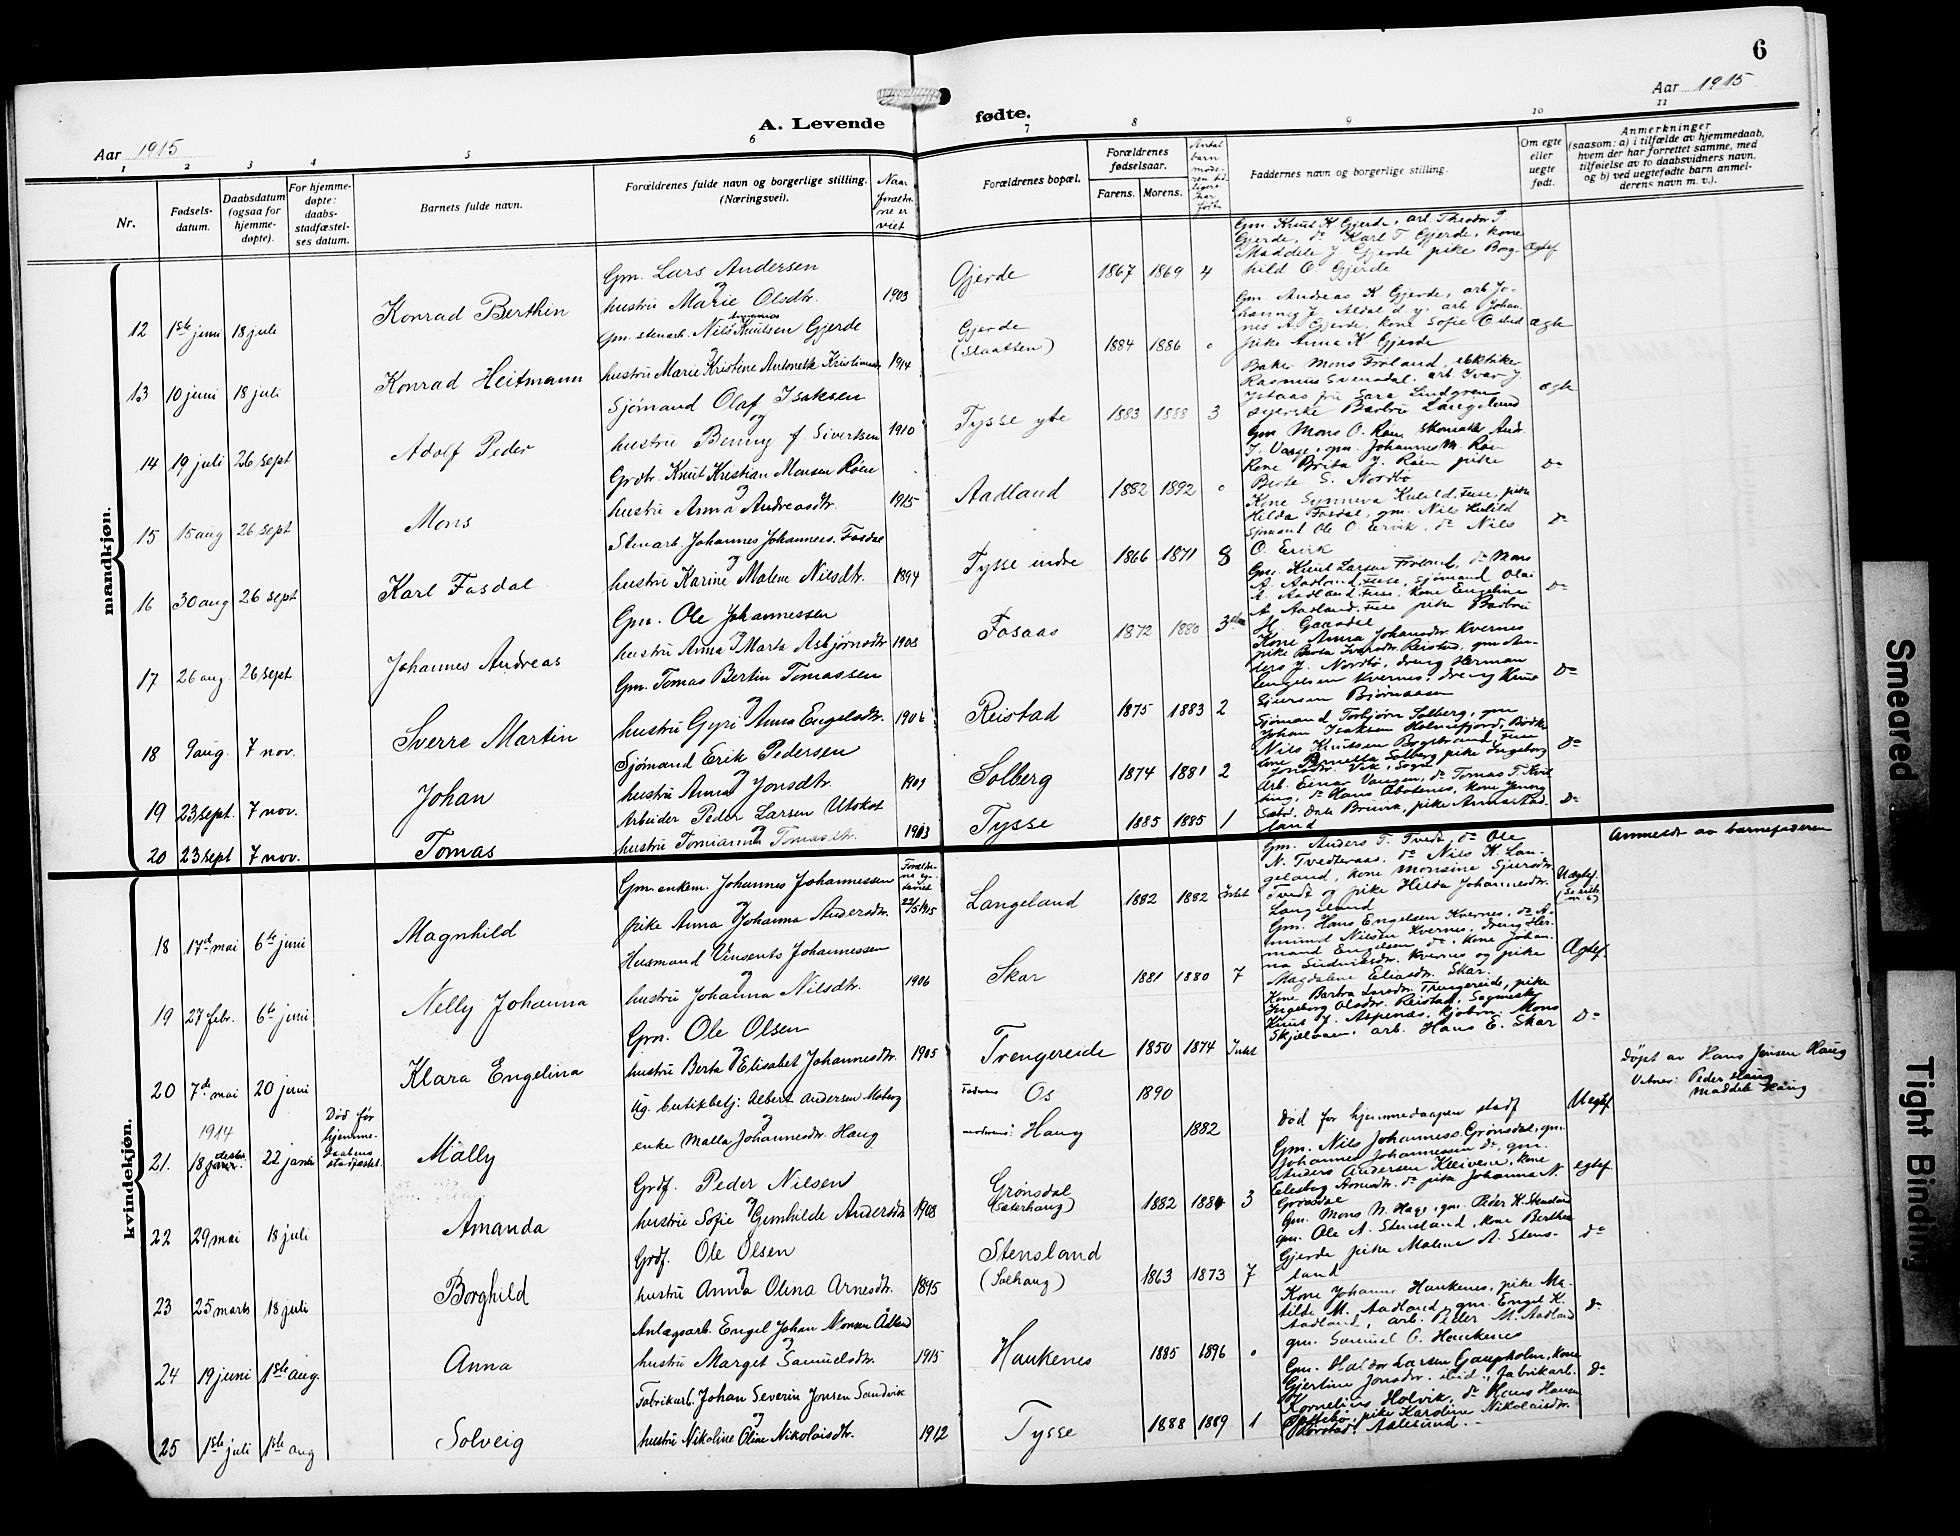 6
Aar 1915
Aar 1915
A. Levende fødte.
1 2 3 4 5 6 7 8 9 10 11
Nr.
Fødsels-
datum.
Daabsdatum
(ogsaa for
hjemme-
døpte).
For hjemme-
døpte:
daabs-
stadfæstel-
ses datum.
Barnets fulde navn.
Forældrenes fulde navn og borgerlige stilling.
(Næringsvei).
Naar
foreldre-
ne er
viet
Forældrenes bopæl.
Forældrenes
fødselsaar.
Farens. Morens.
Antal
barn
mode-
ren tid-
ligere
har
født
Faddernes navn og borgerlige stilling.
Om egte
eller
uegte
født.
Anmerkninger
(saasom: a) i tilfælde av hjemmedaab,
hvem der har forrettet samme, med
tilføielse av to daabsvidners navn,
og b) ved uegtefødte barn anmel-
derens navn m. v.).
mandkjøn.
12 1ste juni 18 juli Konrad Berthin
Gm. Lars Andersen
og
hustru Marie Olsdtr. 1903
Gjerde 1867 1869 4
Gm. Knut K Gjerde, arb. Theodor T.
Gjerde, do Karl T Gjerde, kone
Maddele J Gjerde pike Borg-
hild O. Gjerde
Ægtef
13 10 juni 18 juli Konrad Heitmann
Gm. stenarb. Nils Knutsen Gjerde
og
hustru Marie Kristine Antonette 1914
Gjerde
(Slaatten) 1884 1886 0
Gm. Andreas K Gjerde, arb Jo-
hannes J. Aldal d.y. arb. Johan-
nes A. Gjerde, kone Sofie
pike Anna K Gjerde
ægte
14 19 juli 26 sept Adolf Peder
Sjømand Olaf Isaksen
og
hustru Benny f. Sivertsen 1910
Tysse ytre 1883 1888 3
Baker Mons Frøland,
Rasmus Svensdal, arb. Ivar J.
fru Sara Lindgren
syerske Barbru Langeland
ægte
15 15 aug 26 sept Mons
Grdbr. Knut Kristian Monsen Røen
og
hustru Anna Andreasdtr. 1915
Aadland 1882 1892 0
Gm Mons O. Røen, And.
J. Vaage, gm. Johannes M. Røen
Kone Brita J. Røen pike
Berte S. Nordbø
do
16 30 aug 26 sept Karl Fosdal
Stenarb. Johannes Johanness. Fosdal
og
hustru Karine Malene Nilsdtr. 1894
Tysse indre 1866 1871 8
Kone Synneva Kulild, Fuse, pike
Hilda Fosdal, gm. Nils Kulild
Sjømand Ole O. Ervik, do Nils
O. Ervik
do
17 26 aug. 26 sept Johannes Andreas
Gm. Ole Johannessen
og
hustru Anna Marta Asbjørnsdtr 1903
Fosaas 1872 1880 3
Gm. Knut Larsen Frøland, do Mons
A. Aadland, Fuse, sjømand Olai
A. Aadland, Fuse, kone Engeline
A. Aadland, Fuse pike Barbru
H. Gaasdal
do
18 9 aug. 7 nov. Sverre Martin
Gm. Tomas Bertin Tomassen
og
hustru Gyri Anna Engelsdtr. 1906
Reistad 1875 1883 2
Kone Anna Johansdtr. Kvernes
pike Berta Ivarsdtr. Reistad, gm An-
ders J. Nordbø, dreng Herman
Engelsen Kvernes, dreng Knut
Sjursen Bjørnaasen
do
19 23 sept. 7 nov. Johan
Sjømand Erik Pedersen
og
hustru Anna Jonsdtr. 1909
Solberg 1874 1881 2
Sjømand Torbjørn Solberg, gm
Johan Isaksen Holmefjord,
Nils Knutsen Bogstrand, Fuse
kone Pernella Solberg pike Ingeborg
Jonsdtr. Vik, Sogn
do
20 23 sept 7 nov. Tomas
Arbeider Peder Larsen Utskot
og
hustru Tomianna Tomasdtr. 1913
Tysse 1885 1885 1
Arb. Einar Vangen, do Tomas T. Kvit-
ting, do Hans Øbstenes, kone Jenny
Sæbø, Bruvik, pike Anna Aad-
land
do
kvindekjøn.
18 17de mai 6te juni Magnhild
Gm. enkem. Johannes Johannessen
og
pike Anna Johanna Andersdtr.
Foreldre-
ne eg-
teviet
22/5 1915
Langeland 1882 1882 Intet
Gm. Anders T. Tvedt, do Ole
N. Tvedteraas, do Nils K. Lan-
geland, kone Monsine Sjursdtr
Tvedt og pike Hilda Johannesdtr.
Langeland
Uegtef.
Anmeldt av barnefaderen
19 27 febr. 6te juni Nelly Johanna
Husmand Vinsents Johannessen
og
hustru Johanna Nilsdtr. 1906
Skar 1881 1880 7
Gm. Hans Engelsen Kvernes, do A-
mund Nilsen Kvernes, dreng Her-
mand Engelsen do, kone Johan-
na Kvernes og pike
Magdalene Eliasdtr. Skar.
Ægtef.
20 7de mai 20 juni Klara Engelina
Gm. Ole Olsen
og
hustru Berta Elisabet Johannesdtr. 1905
Trengereide 1850 1874 Intet
Kone Bertha Larsdtr. Trengereide, pike
Ingeborg Olsdtr. Reistad, Sagmester
Knut J. Aspenæs, kjøbm. Mons
Skjælaaen, arb. Hans E. Skar
do
21. 1914 18 decbr. 22 januar
Død før
hjemme-
daabens
stadfæstel.
Mally
Ug. butikbetj: Albert Andersen Moberg
og
enke Malla Johannesdtr. Haug
Faderens Os 1890
moderens: Haug 1882
Død før hjemmedaapen stadf
Uegtef
Døpt av Hans Jensen Haug
Vitner: Peder Haug
Maddele Haug
22 29 mai 18 juli Amanda
Grdf. Peder Nilsen
og
hustru Sofie Gunhilde Andersdtr 1908
Grønsdal
(Sæterhaug) 1882 1886 3
Gm. Nils Johanness. Grønsdal, gm.
Johannes Johannessen do, gm.
Anders Andersen Kleivene, kone
Eilesbog Arnesdtr. do pike Johanna N.
Grønsdal
egtef
23 25 marts 18 juli Borghild
Grdf. Ole Olsen
og
hustru Anna Olina Arnesdtr. 1895
Stensland
(Solhaug) 1863 1873 7
Gm. Mons N. Hage, gm. Peder K. Stensland
gm. Ole A. Stensland, kone Berthe
Gjerde pike Malene A. Stens-
land
do
24 19 juni 1ste aug. Anna
Anlægsarb. Engel Johan Monsen Ådland
og
hustru Margit Samuelsdtr. 1915
Haukenes 1885 1896 0
Kone Johanne Haukenes, pike Ma-
tilde M. Aadland, gm. Engel K.
Aadland, arb. Peder M. Aadland
gm. Samuel O. Haukenes
do
25 1ste juli 1ste aug Solveig
Fabrikarb. Johan Severin Jonsen Sandvik
og
hustru Nikoline Oline Nikolaisdtr. 1912
Tysse 1888 1889 1
Gm. Haldor Larsen Gaupholm, kone
Gjertine Jonsdtr. ibid., fabrikarb.
Kornelius Holvik, do Hans Hansen
pike Karoline Nikolaisdtr.
Aalesund.
do
Smeared
Tight Binding